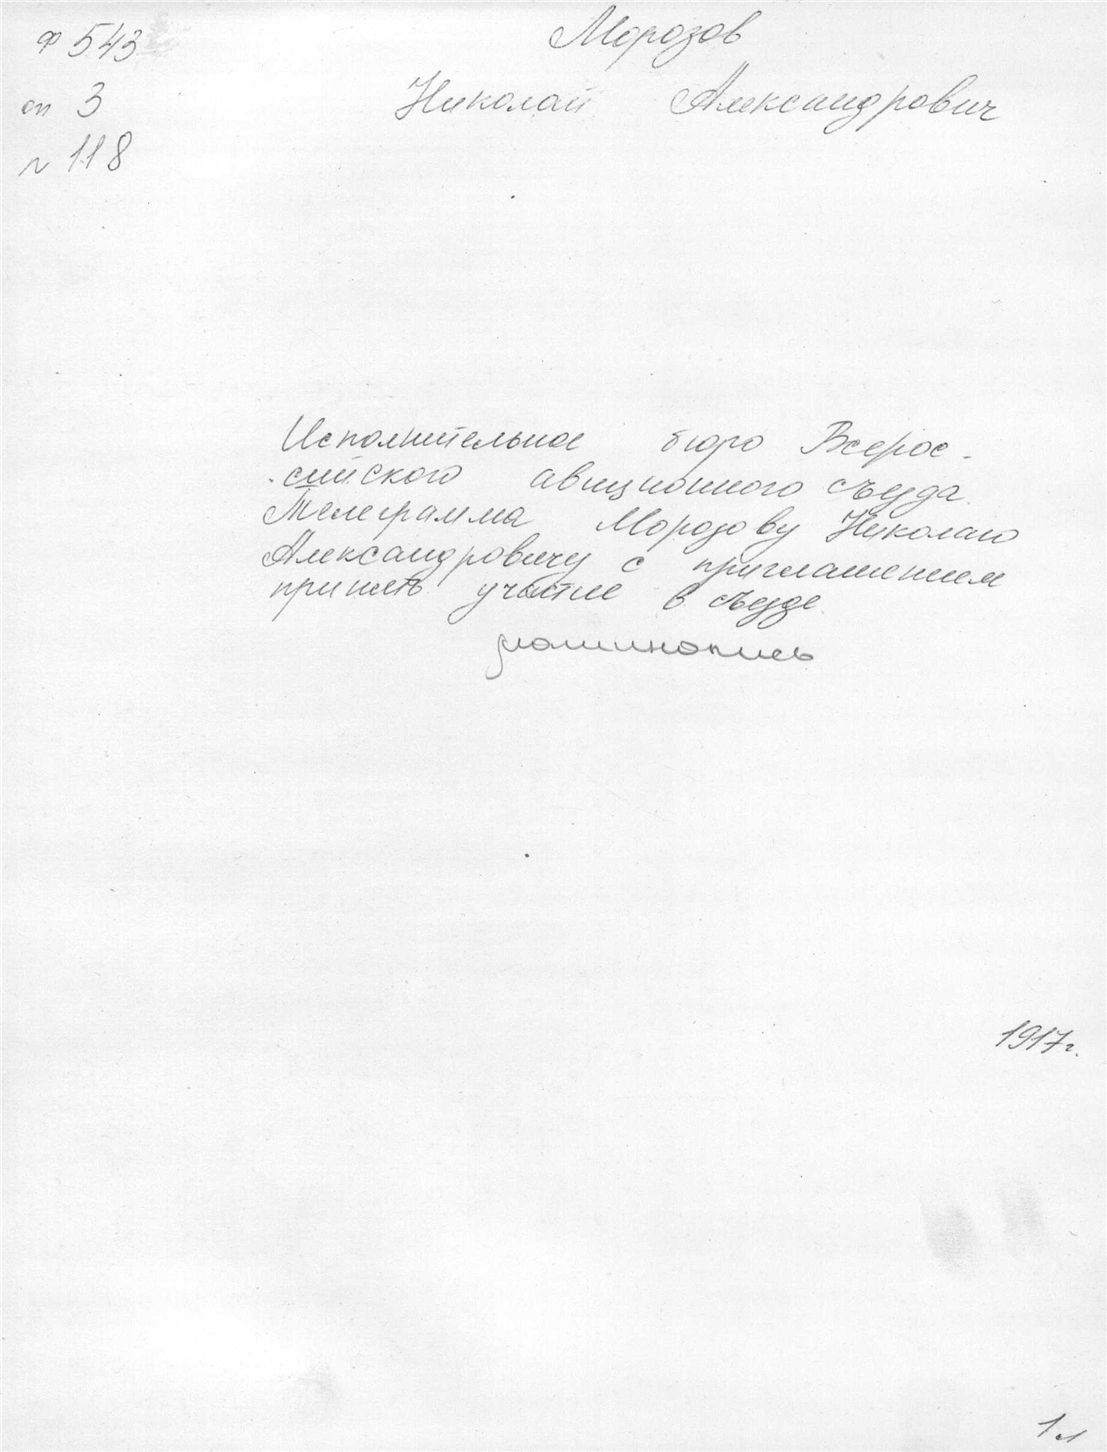 Ф 543
оп 3
№ 118
Морозов
Николай Александрович
Исполнительное бюро Всерос-
сийского авиционного съезда.
Телеграмма Морозову Николаю
Александровичу с приглашением
принять участие в съезде.
машинопись
1917 г.
1 л